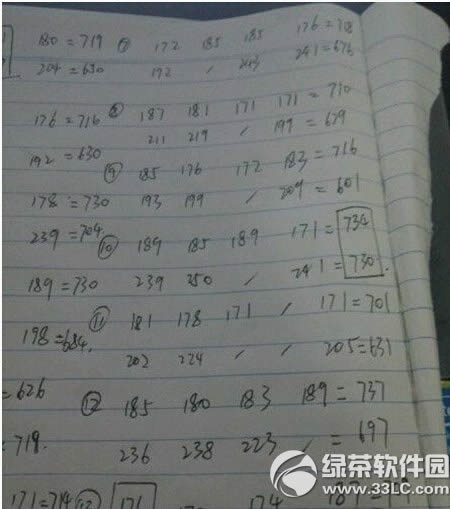 180=719 ⑦ 172 185 185 176=718
204=650 192 / 243 241=676
176=716 ⑧ 187 181 171 171=710
192=630 211 219 / 199=629
⑨ 185 176 172 183=716
178=730 193 199 / 209=601
239=704 ⑩ 189 185 189 171=734
189=730 239 250 / 241=730
⑪ 181 178 171 / 171=701
198=684. 202 224 / / 205=631
=626 ⑫ 185 180 183 189=737
=719. 236 238 223 / =697
171=714 171 174 187=
绿茶软件园
www.33LC.com